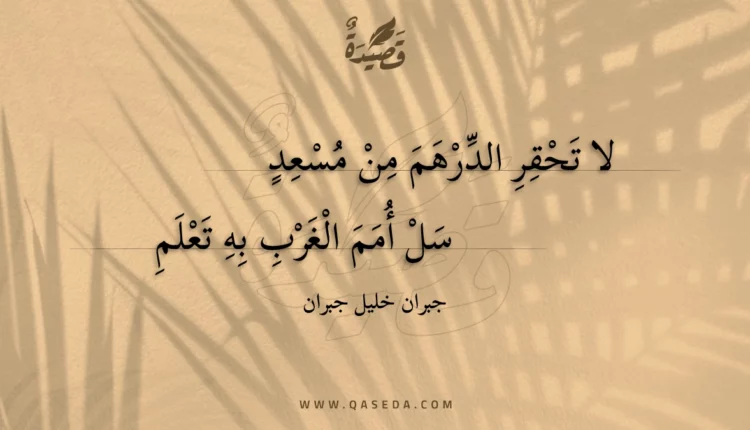 قَصِيدَةٌ
لا تَحْقِرِ الدِّرْهَمَ مِنْ مُسْعِدٍ
سَلْ أُمَمَ الْغَرْبِ بِهِ تَعْلَمِ
جبران خليل جبران
WWW.QASEDA.COM